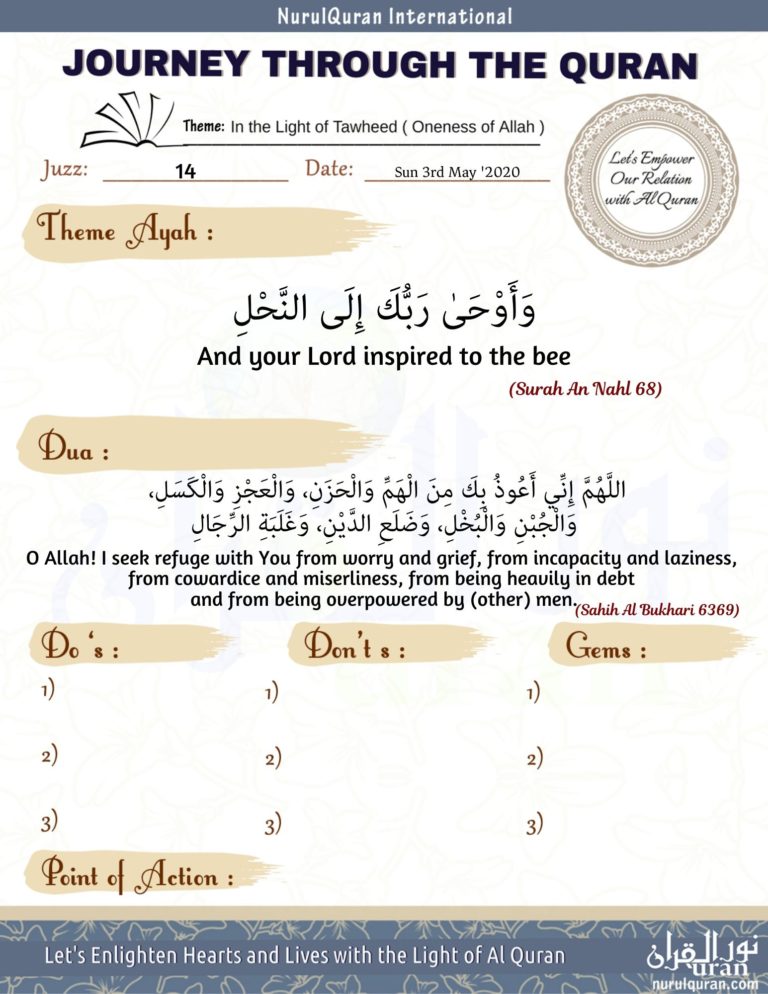 NurulQuran International
JOURNEY THROUGH THE QURAN
Theme: In the Light of Tawheed ( Oneness of Allah )
Let's Empower
Our Relation
with Al Quran
Juzz: 14 Date: Sun 3rd May '2020
Theme Ayah :
وَأَوْحَىٰ رَبُّكَ إِلَى النَّحْلِ
And your Lord inspired to the bee
(Surah An Nahl 68)
Dua :
اللَّهُمَّ إِنِّي أَعُوذُ بِكَ مِنَ الْهَمِّ وَالْحَزَنِ، وَالْعَجْزِ وَالْكَسَلِ،
وَالْجُبْنِ وَالْبُخْلِ، وَضَلَعِ الدَّيْنِ، وَغَلَبَةِ الرِّجَالِ
O Allah! I seek refuge with You from worry and grief, from incapacity and laziness,
from cowardice and miserliness, from being heavily in debt
and from being overpowered by (other) men.
(Sahih Al Bukhari 6369)
Do 's : Don't s : Gems :
1) 1) 1)
2) 2) 2)
3) 3) 3)
Point of Action :
Let's Enlighten Hearts and Lives with the Light of Al Quran
نور القرآن
uran
nurulquran.com